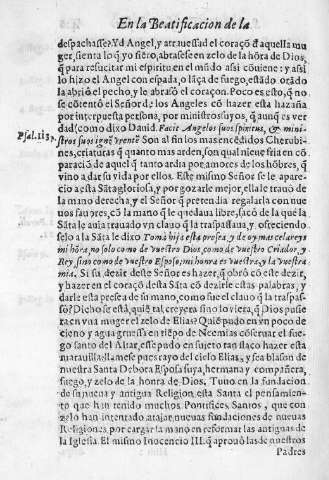 En la Beatificacion de la
despachasse? Yd Angel, y atrauessad el coraçõ d̃ aquella mu
ger, sienta lo q̃ yo siẽto, abrasese en zelo de la hõra de Dios,
q̃ para resucitar mi espiritu en el mũdo assi conuiene: y assi
lo hizo el Angel con espada, o lãça de fuego, estãdo orãdo
la abrio el pecho, y le abrasò el coraçon. Poco es esto, q̃ no
se cõtentò el Señor de los Angeles cõ hazer esta hazaña
por interpuesta persona, por ministros suyos, q̃ aunq̃ es ver
dad (como dixo Dauid. Facit Angelos suos spiritus, & mini-
Psal. 113.
stros suos ignẽ vrentẽ Son al fin los mas encẽdidos Cherubi-
nes, criaturas q̃ quanto mas arden, son qual nieue fria en cõ
paraciõ de aquel q̃ tanto ardia por amores de los hõbres, q̃
vino a dar su vida por ellos. Este mismo Señor se le apare-
cio a esta Sãta gloriosa, y por gozarle mejor, ella le trauò de
la mano derecha, y el Señor q̃ pretendia regalarla con nue
uos fauores, cõ la mano q̃ le quedaua libre, sacò de la q̃ la
Sãta le auia trauado vn clauo q̃ la traspassaua, y ofreciendo
selo a la Sãta le dixo Toma hija esta presea, y de oy mas celareys
mi hõra no solo como de vuestro Dios, como de vuestro Criador, y
Rey, sino como de vuestro Esposo, mi honra es vuestra, y la vuestra
mia. Si su dezir deste Señor es hazer, q̃ obrò cõ este dezir,
y hazer en el coraçõ desta Sãta cõ dezirle estas palabras, y
darle esta presea de su mano, como fue el clauo q̃ la traspas-
sò? Dicho se està, quiẽ tal creyera sino lo viera, q̃ Dios pusie
ra en vna muger el zelo de Elias? Quiẽ pudo en vn poco de
cieno y agua gruessa en tiẽpo de Neemias cõseruar el fue-
go santo del Altar, este pudo en sujeto tan flaco hazer esta
marauilla: llamese pues rayo del cielo Elias, y sea blason de
nuestra Santa Debora Esposa suya, hermana y compañera,
fuego, y zelo de la honra de Dios. Tuuo en la fundacion
de su nueua y antigua Religion esta Santa el pensamien-
to que han tenido muchos Pontifices Santos, que con
zelo han intentado atajar nueuas fundaciones de nueuas
Religiones, por cargar la mano en reformar las antiguas de
la Iglesia. El mismo Inocencio III. q̃ aprouò las de nuestros
Padres